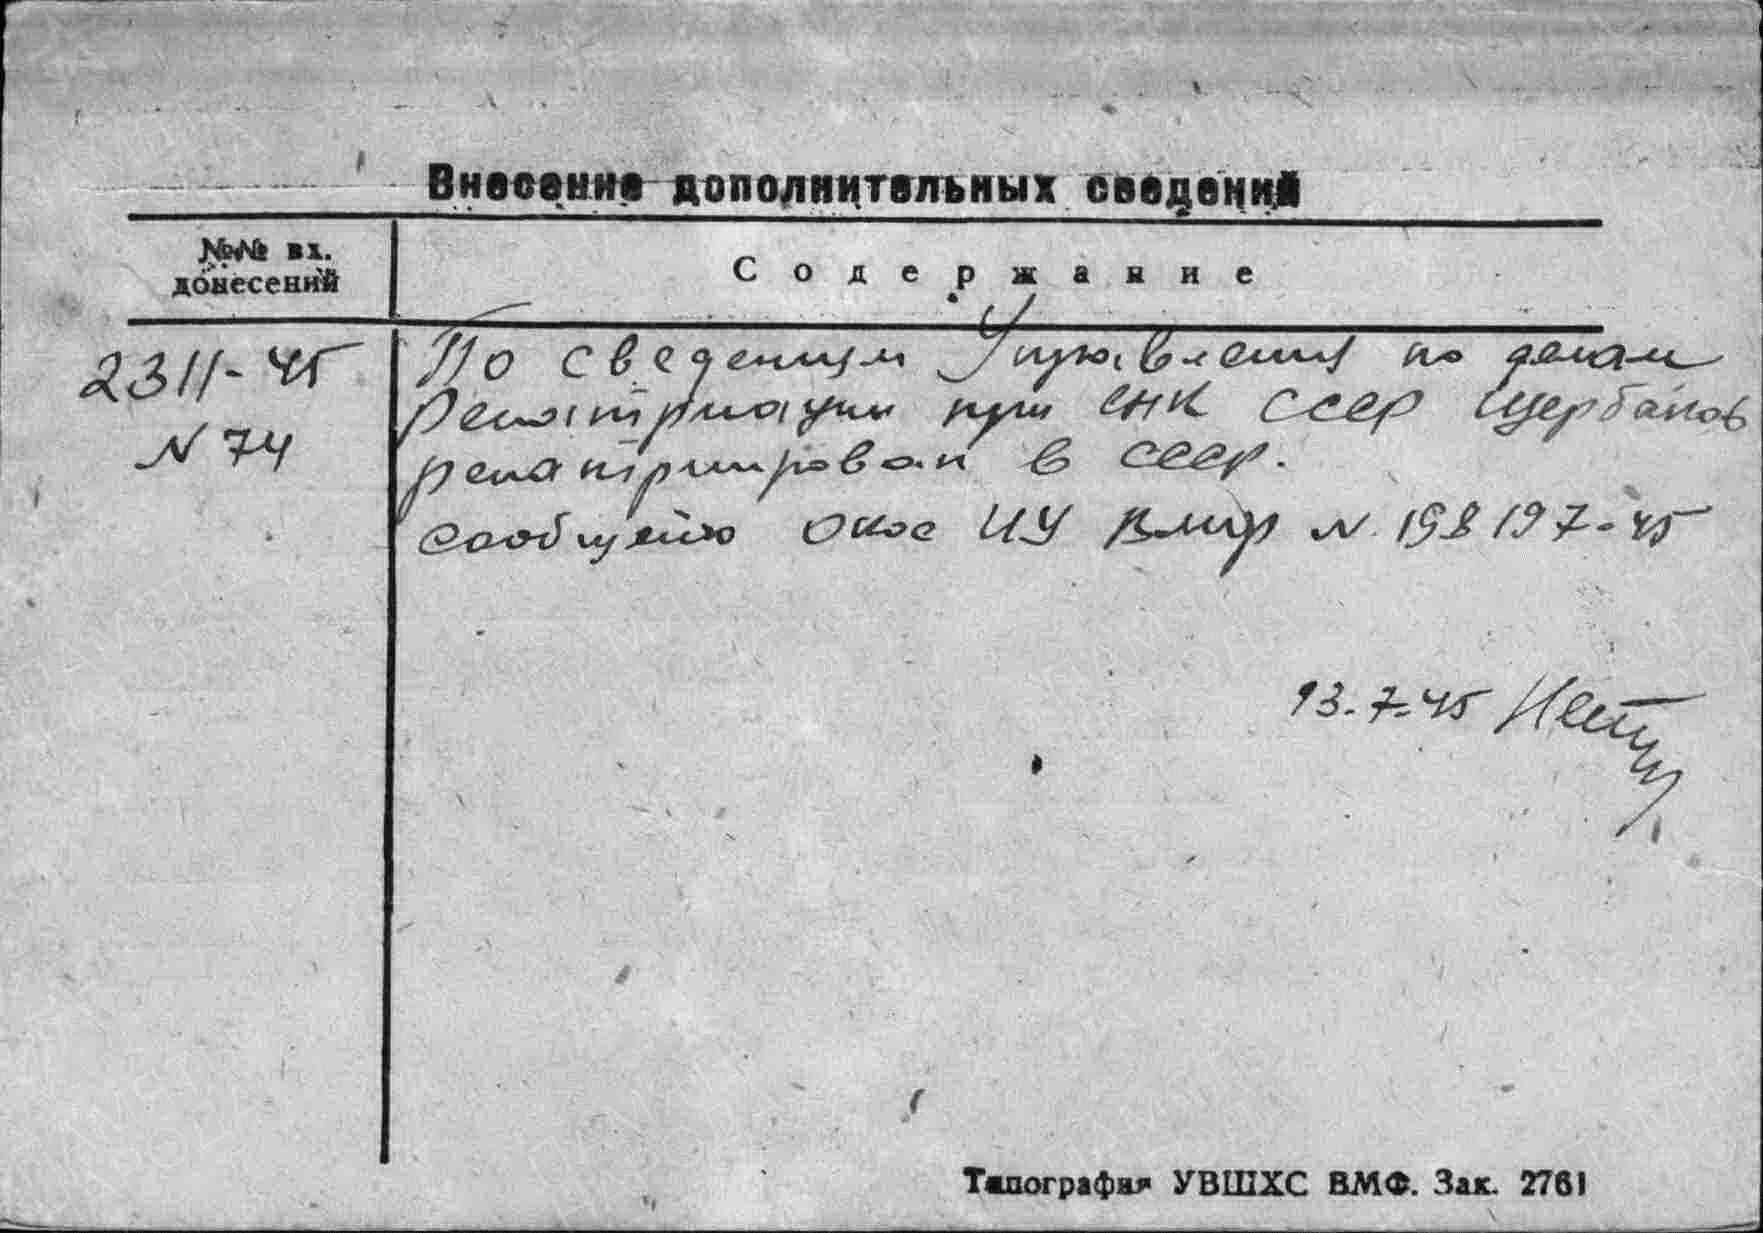 Внесение дополнительных сведений
№№ вх.
донесений
Содержание
2311-45
N 74
По сведениям Управления по делам
репатриации при СНК СССР Щербаков
репатриирован в СССР.
сообщено ВМФ N 198197-45
13-7-45
Типография УВШХС ВМФ. Зак. 2761